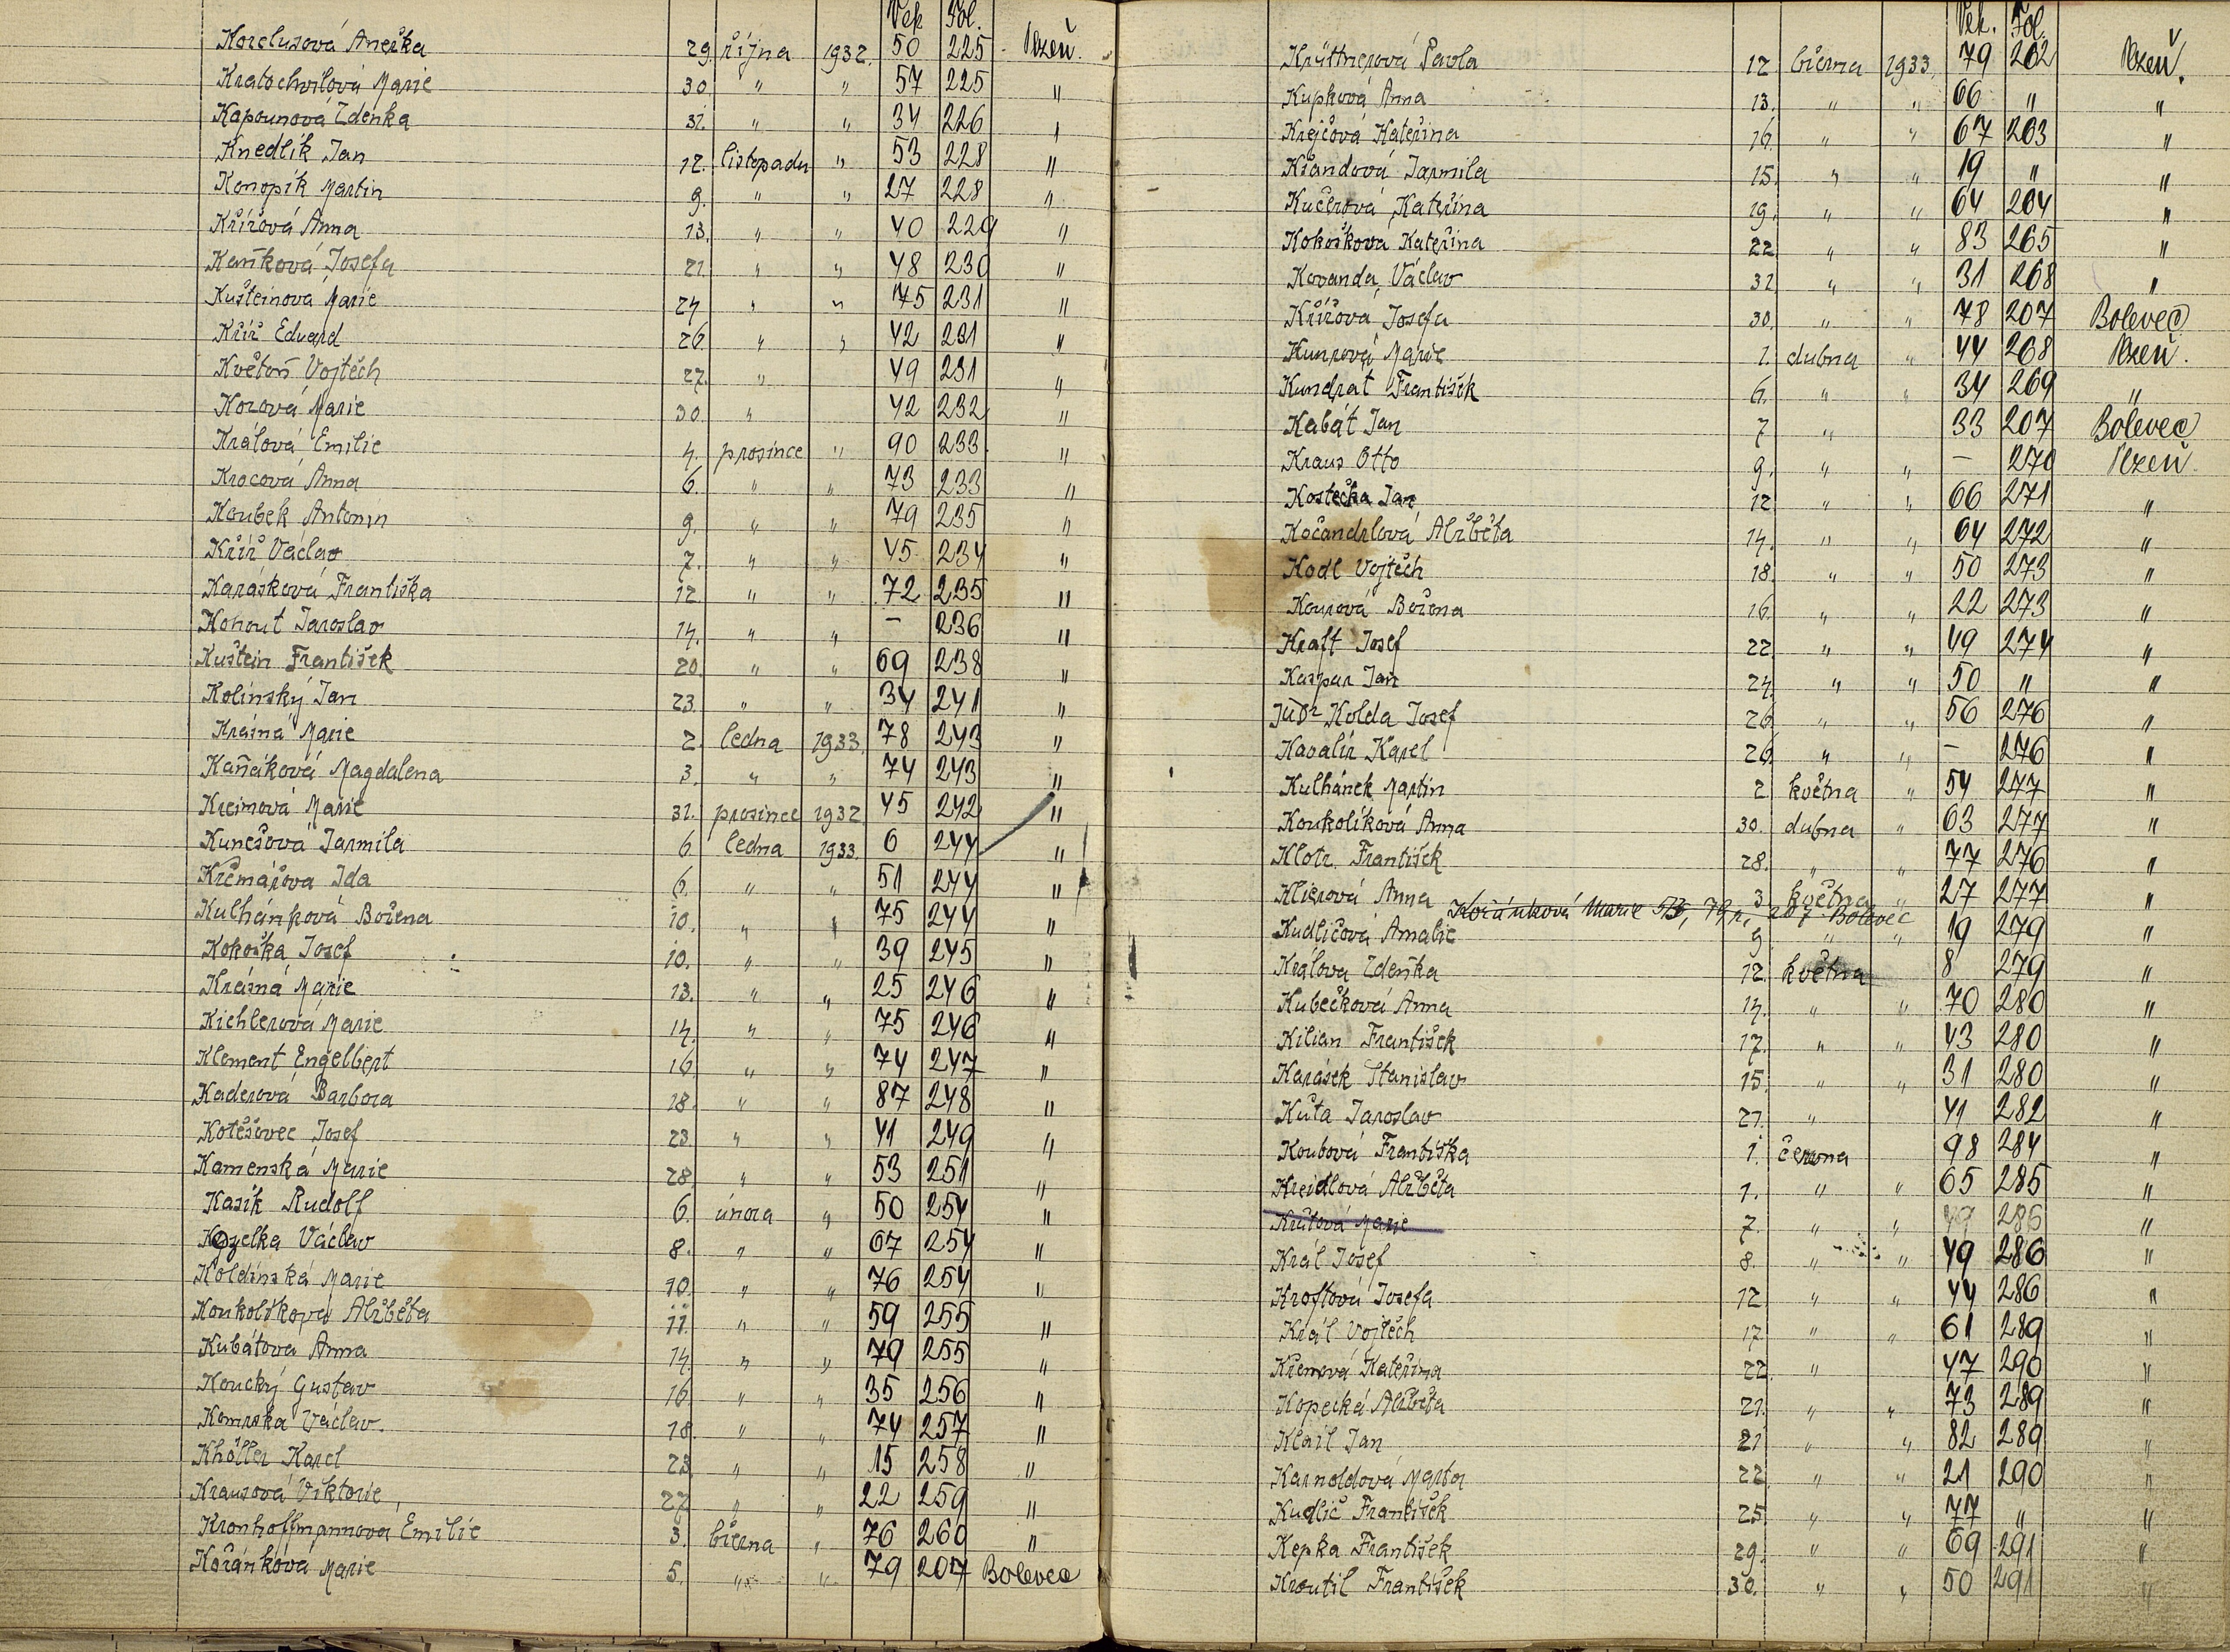 Věk Fol.
Korelusová Anežka 29. října 1932. 50 225 Plzeň.
Kratochvilová Marie 30. " " 57 225 "
Kapounová Zdenka 31. " " 34 226 "
Knedlík Jan 12. listopadu " 53 228 "
Konopík Martin 9. " " 27 228 "
Křížová Anna 13. " " 40 229 "
Kaňková Josefa 21. " " 48 230 "
Kušteinová Marie 24 " " 75 231 "
Kříž Eduard 26. " " 42 231 "
Květoň Vojtěch 27. " 49 231 "
Kozová Marie 30. " 42 232 "
Králová Emilie 4. prosince " 90 233. "
Krocová Anna 6. " " 73 233 "
Koubek Antonín 9. " " 79 235 "
Kříž Václav 7. " " 45 234 "
Karásková Františka 12 " " 72 235 "
Kohout Jaroslav 14. " " – 236 "
Kuštein František 20. " " 69 238 "
Kolínský Jan 23. " " 34 241 "
Krásná Marie 2. ledna 1933. 78 243 "
Kaňáková Magdalena 3. " " 74 243 "
Kreimová Marie 31. prosince 1932 45 242 "
Kunešová Jarmila 6. ledna 1933. 6 244 "
Krčmářova Ida 6. " " 51 244 "
Kulhánková Božena 10. " " 75 244 "
Kokoška Josef 10. " " 39 245 "
Krásná Marie 13. " " 25 246 "
Kichlerová Marie 14. " " 75 246 "
Klement Engelbert 16. " " 74 247 "
Kaderová Barbora 18. " " 87 248 "
Kotěšovec Josef 23 " " 41 249 "
Kamenská Marie 28. " " 53 251 "
Kasík Rudolf 6. února " 50 254 "
Kozelka Václav 8. " " 67 254 "
Koldinská Marie 10. " " 76 254 "
Koukolíkova Alžběta 11. " " 59 255 "
Kubátova Anna 14. " " 79 255 "
Koucký Gustav 16. " " 35 256 "
Komrska Václav. 18 " " 74 257 "
Khöller Karel 23 " " 15 258 "
Krausová Viktorie 27 " " 22 259 "
Kronhoffmannova Emilie 3. března " 76 260 "
Kořánková Marie 5. " " 79 207 Bolevec
Věk. Fol.
Krüttnerová Pavla 12 března 1933. 79 262 Plzeň.
Kupková Anna 13. " " 66 " "
Krejčová Kateřina 16. " " 67 263 "
Křandová Jarmila 15. " " 19 " "
Kučerová Kateřina 19. " " 64 264 "
Kokošková Kateřina 22. " " 83 265 "
Kovanda Václav 31. " " 31 268 "
Křížova Josefa 30. " " 78 207 Bolevec
Kunzová Marie 1. dubna " 44 268 Plzeň.
Kundrat František 6. " " 34 269 "
Kabát Jan 7 " 33 207 Bolevec
Kraus Otto 9. " " – 270 Plzeň.
Kostečka Jan 12 " " 66 271 "
Kočandrlová Alžběta 14. " " 64 272 "
Kodl Vojtěch 18. " " 50 273 "
Kourová Božena 16. " " 22 273 "
Kraft Josef 22. " " 49 274 "
Kaspar Jan 24. " " 50 " "
JUDr Kolda Josef 26. " " 56 276 "
Kavalír Karel 26. " " – 276 "
Kulhánek Martin 2. května " 54 277 "
Koukolíková Anna 30. dubna " 63 277 "
Klotz František 28. " " 77 276 "
Klierová Anna 3 května " 27 277 "
Kořánková Marie 5/3, 79 r., 207 Bolevec
Kudličová Amalie 9 " " 19 279 "
Králova Zdeňka 12. května 8 279 "
Kubečková Anna 14. " " 70 280 "
Kilian František 17. " " 43 280 "
Karásek Stanislav 15. " " 31 280 "
Kůta Jaroslav 21. " 41 282 "
Koubová Františka 1. června 98 284 "
Kreidlová Alžběta 1. " " 65 285 "
Krůtová Marie 7. " " 49 286 "
Král Josef 8. " " 49 286 "
Kroftová Josefa 12 " " 44 286 "
Král Vojtěch 17 " " 61 289 "
Křenová Kateřina 22. " 47 290 "
Kopecká Alžběta 21. " " 73 289 "
Klail Jan 21 " " 82 289 "
Karnoldová Marta 22 " " 21 290 "
Kudlič František 25 " " 77 " "
Kepka František 29. " " 69 291 "
Kroutil František 30. " " 50 291 "